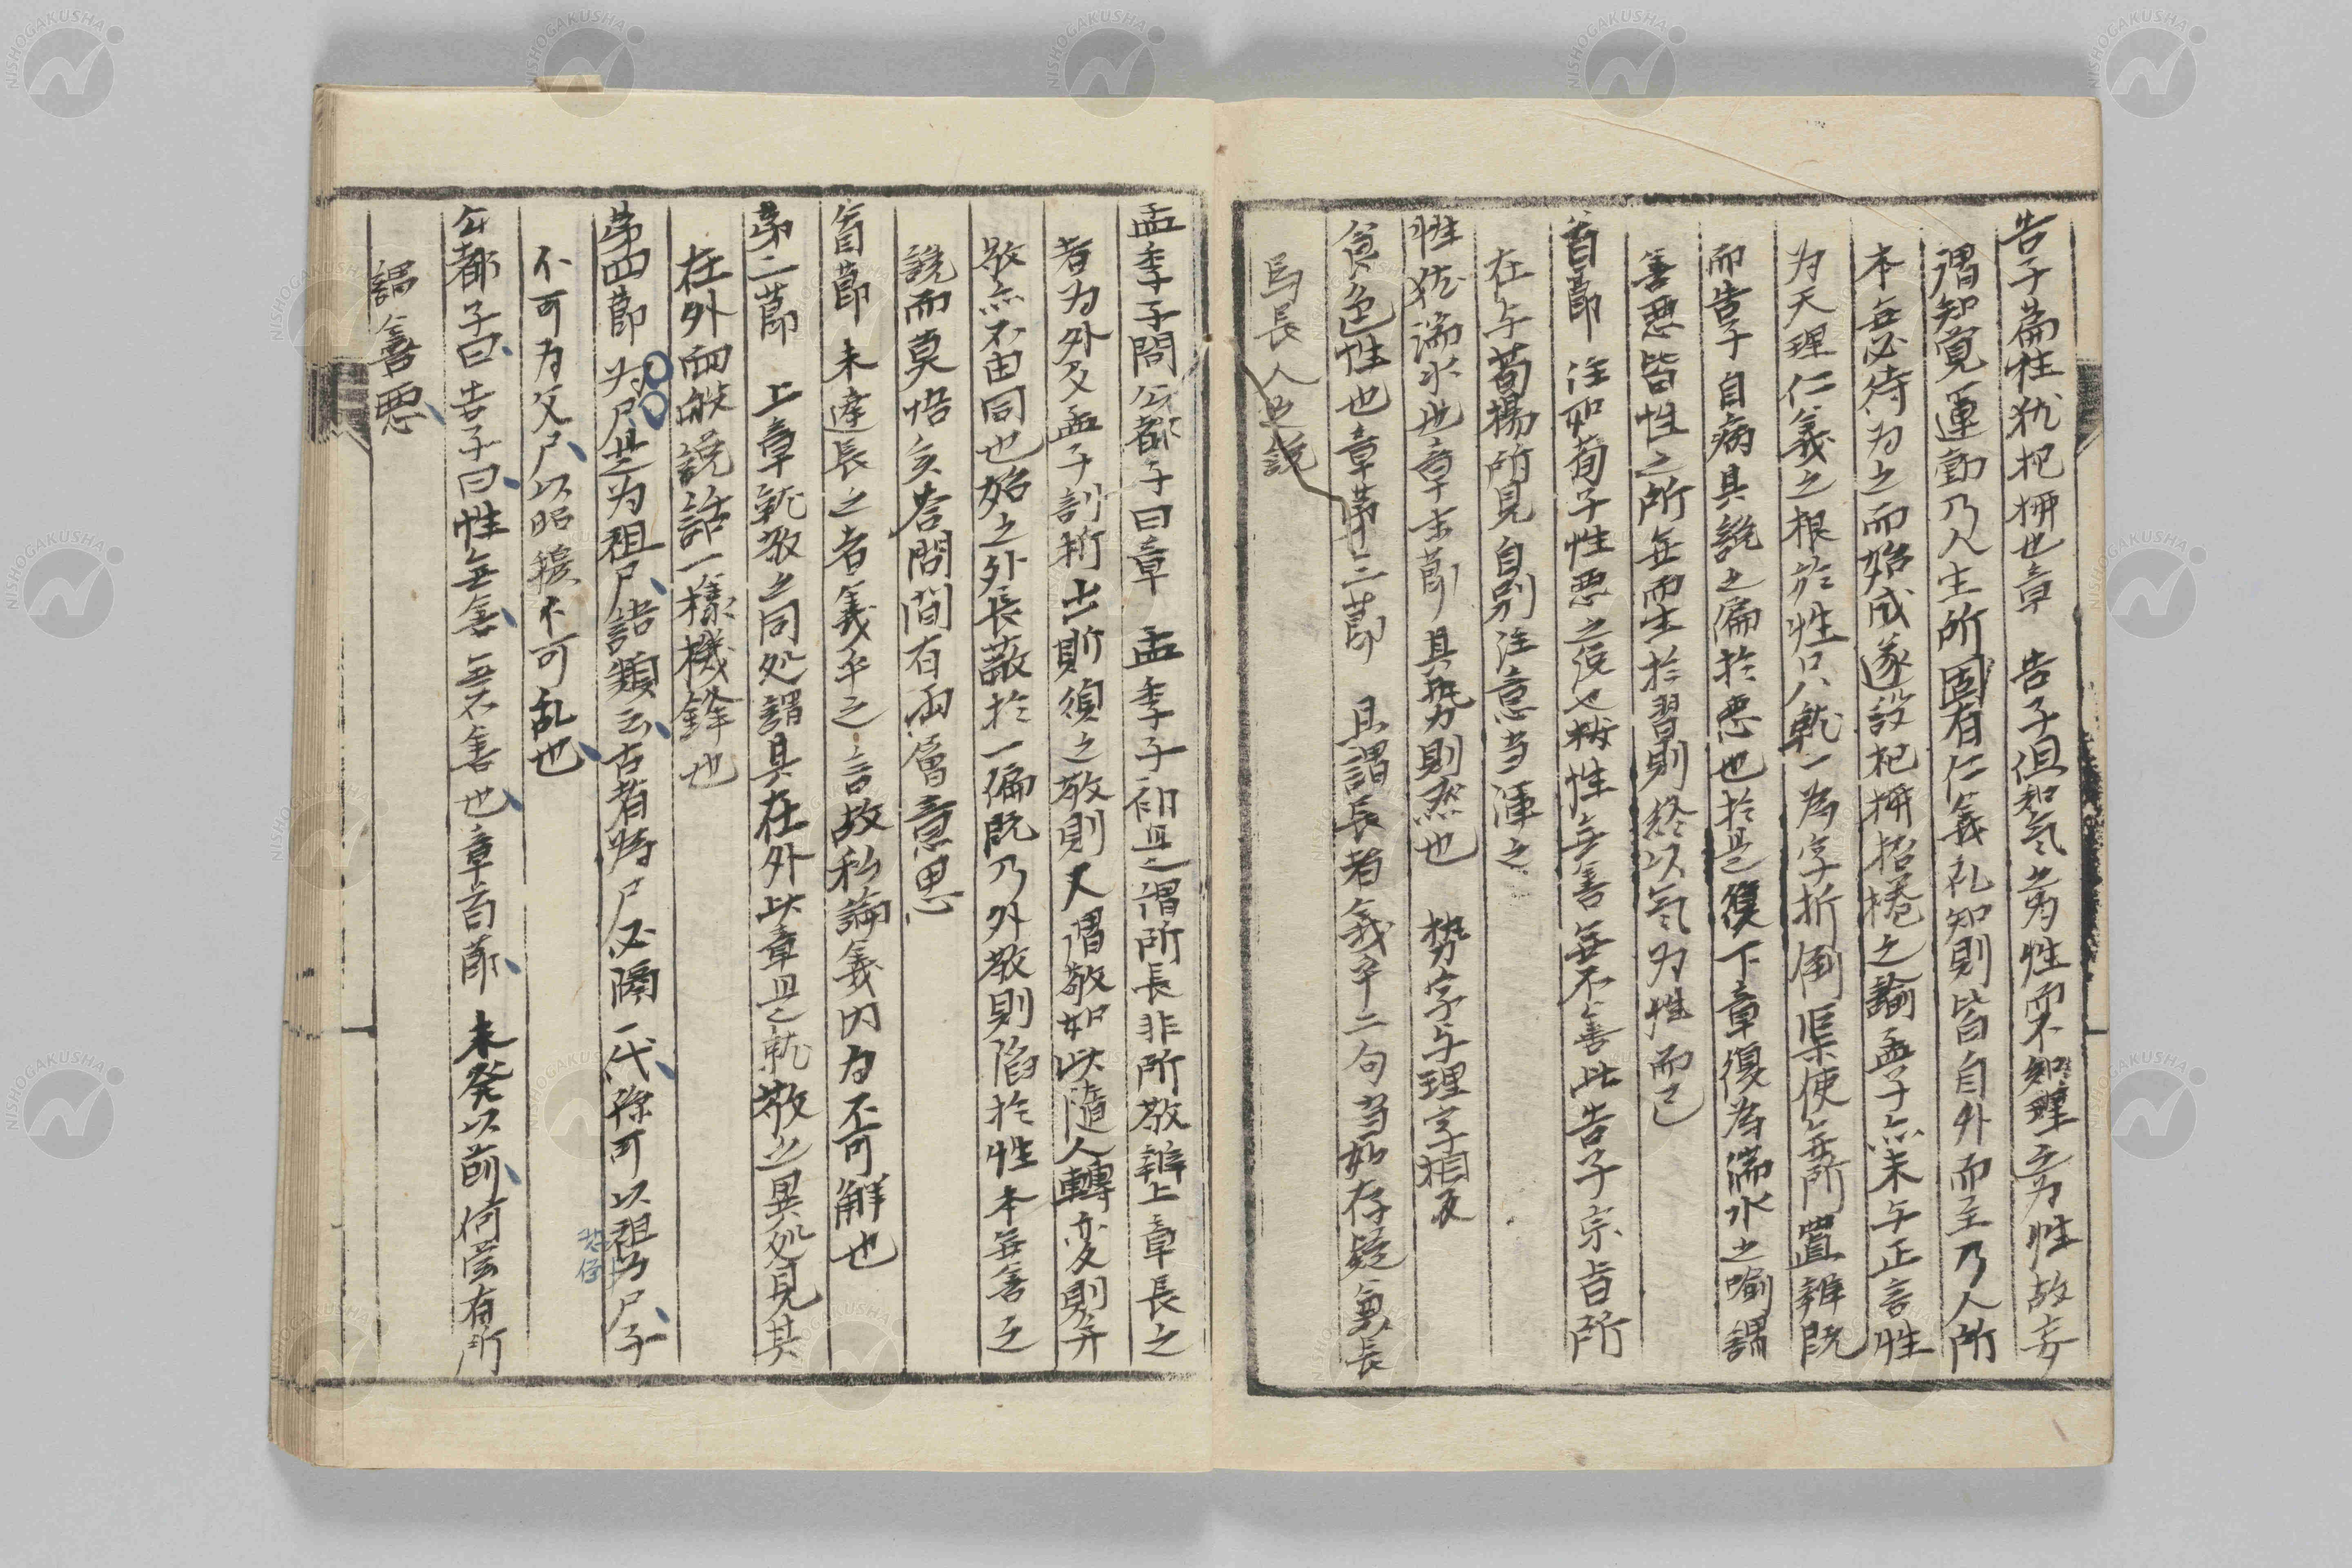 告子篇性犹杞柳也章　告子但知气之为性而不知理之为性故妄
谓知覚運動乃人生所固有仁義礼知則皆自外而至乃人所
本無必待为之而始成遂設杞柳桮棬之諭孟子亦未与正言性
为天理仁義之根於性只就一為字折倒渠使無所置辨既
而告子自病其説之偏於悪也於是復下章復為湍水之喻謂
善悪皆性之所無而生於習則終以气为性而已
首節　注如荀子性悪之説也 性無善無不善此告子宗旨所
在与荀揚所見自別注意当渾之
性犹湍水也章末節　其勢則然也　勢字与理字相反
食色性也章第三節　且謂長者義乎二句当如存疑 長
馬長人之説
孟季子問公都子曰章　孟季子初是謂所長非所敬辨上章長之
者为外及孟子剖析出則須之敬則又謂敬如此隨人轉変則并
敬亦不由同也始之外長蔽於一偏既乃外敬則陷於性本無善之
説而莫悟矣答問間有両層意思
首節　未達長之者義乎之言故私論義内为不可解也
第二節　上章就敬之同処謂其在外此章是就敬之異処見其
在外両般説話一樣機鋒也
第四節　为尸是为祖尸語類云古者時尸必隔一代孫可以祖为尸子
不可为父尸以昭穆不可乱也
公都子曰告子曰性無善無不善也章首節　未発以前何嘗有所
謂善悪